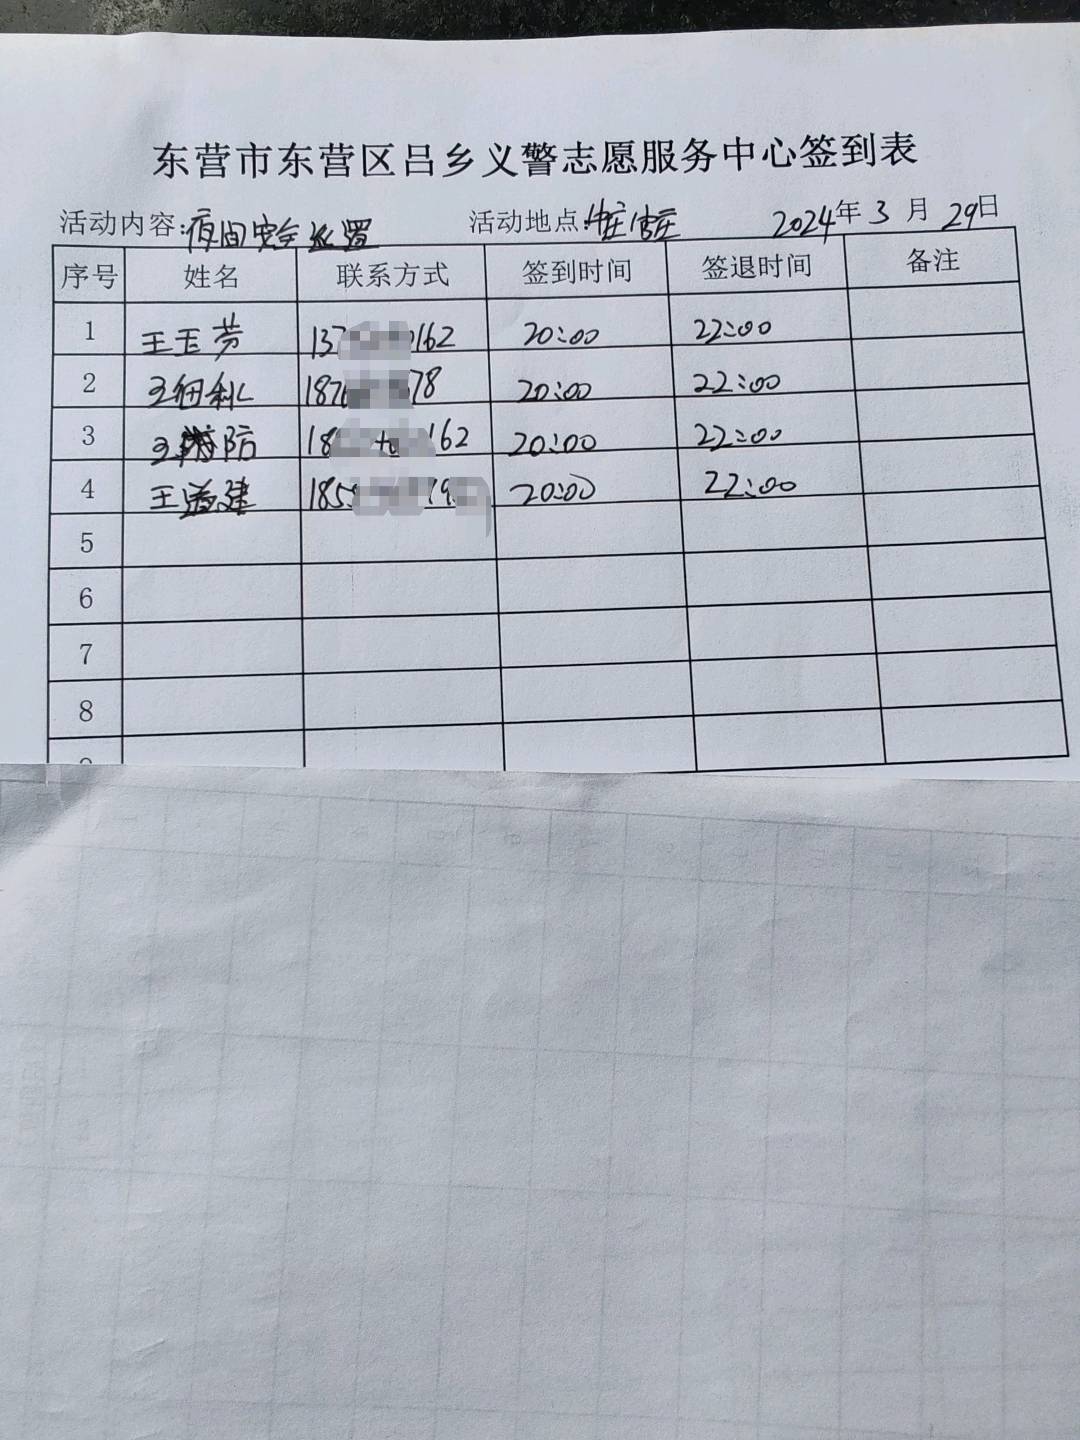 东营市东营区吕乡义警志愿服务中心签到表
活动内容:夜间安全 活动地点: 2024年3月29日
序号 姓名 联系方式 签到时间 签退时间 备注
1 王玉芳 137 162 20:00 22:00
2 王 利 187 78 20:00 22:00
3 王 防 18 162 20:00 22:00
4 王道建 185 19 20:00 22:00
5
6
7
8